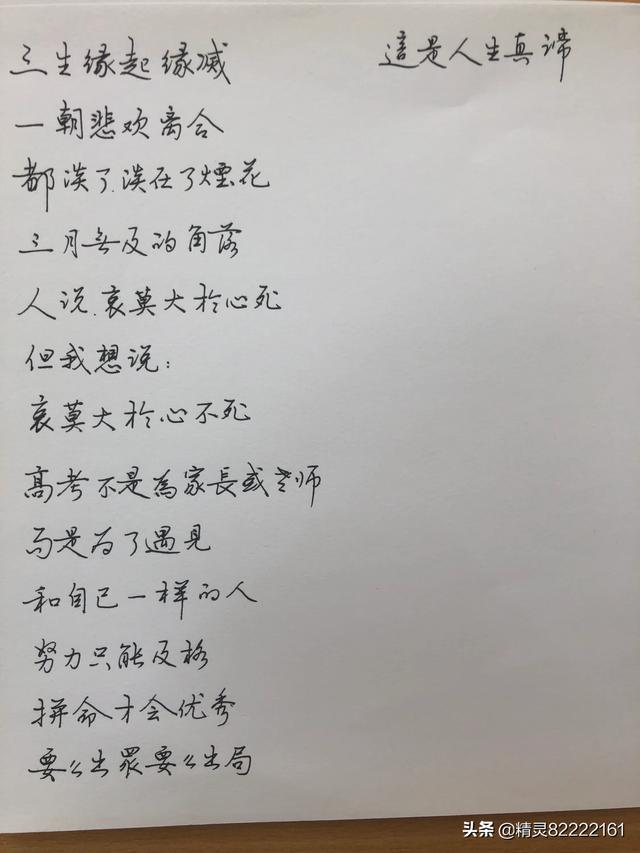 三生缘起缘灭
一朝悲欢离合
都淡了.淡在了煙花
三月無及的角落
人说.哀莫大於心死
但我想说:
哀莫大於心不死
高考不是為家長或老师
而是为了遇見
和自己一样的人
努力只能及格
拼命才会优秀
要么出眾要么出局
這是人生真谛
头条 @精灵82222161